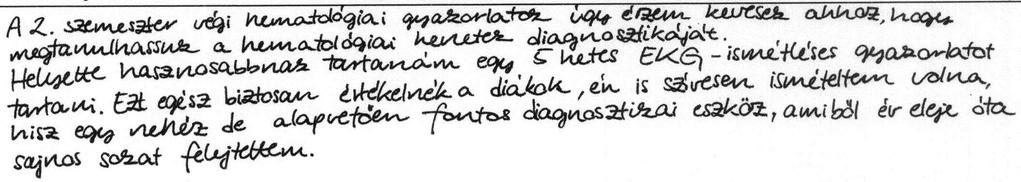 A 2. szemeszter végi hematológiai gyakorlatok úgy érzem kevesek ahhoz, hogy
megtanulhassuk a hematológiai kenetek diagnosztikáját.
Helyette hasznosabbnak tartanám egy 5 hetes EKG-ismétléses gyakorlatot
tartani. Ezt egész biztosan értékelnék a diákok, én is szívesen ismételtem volna,
hisz egy nehéz de alapvetően fontos diagnosztikai eszköz, amiből év eleje óta
sajnos sokat felejtettem.